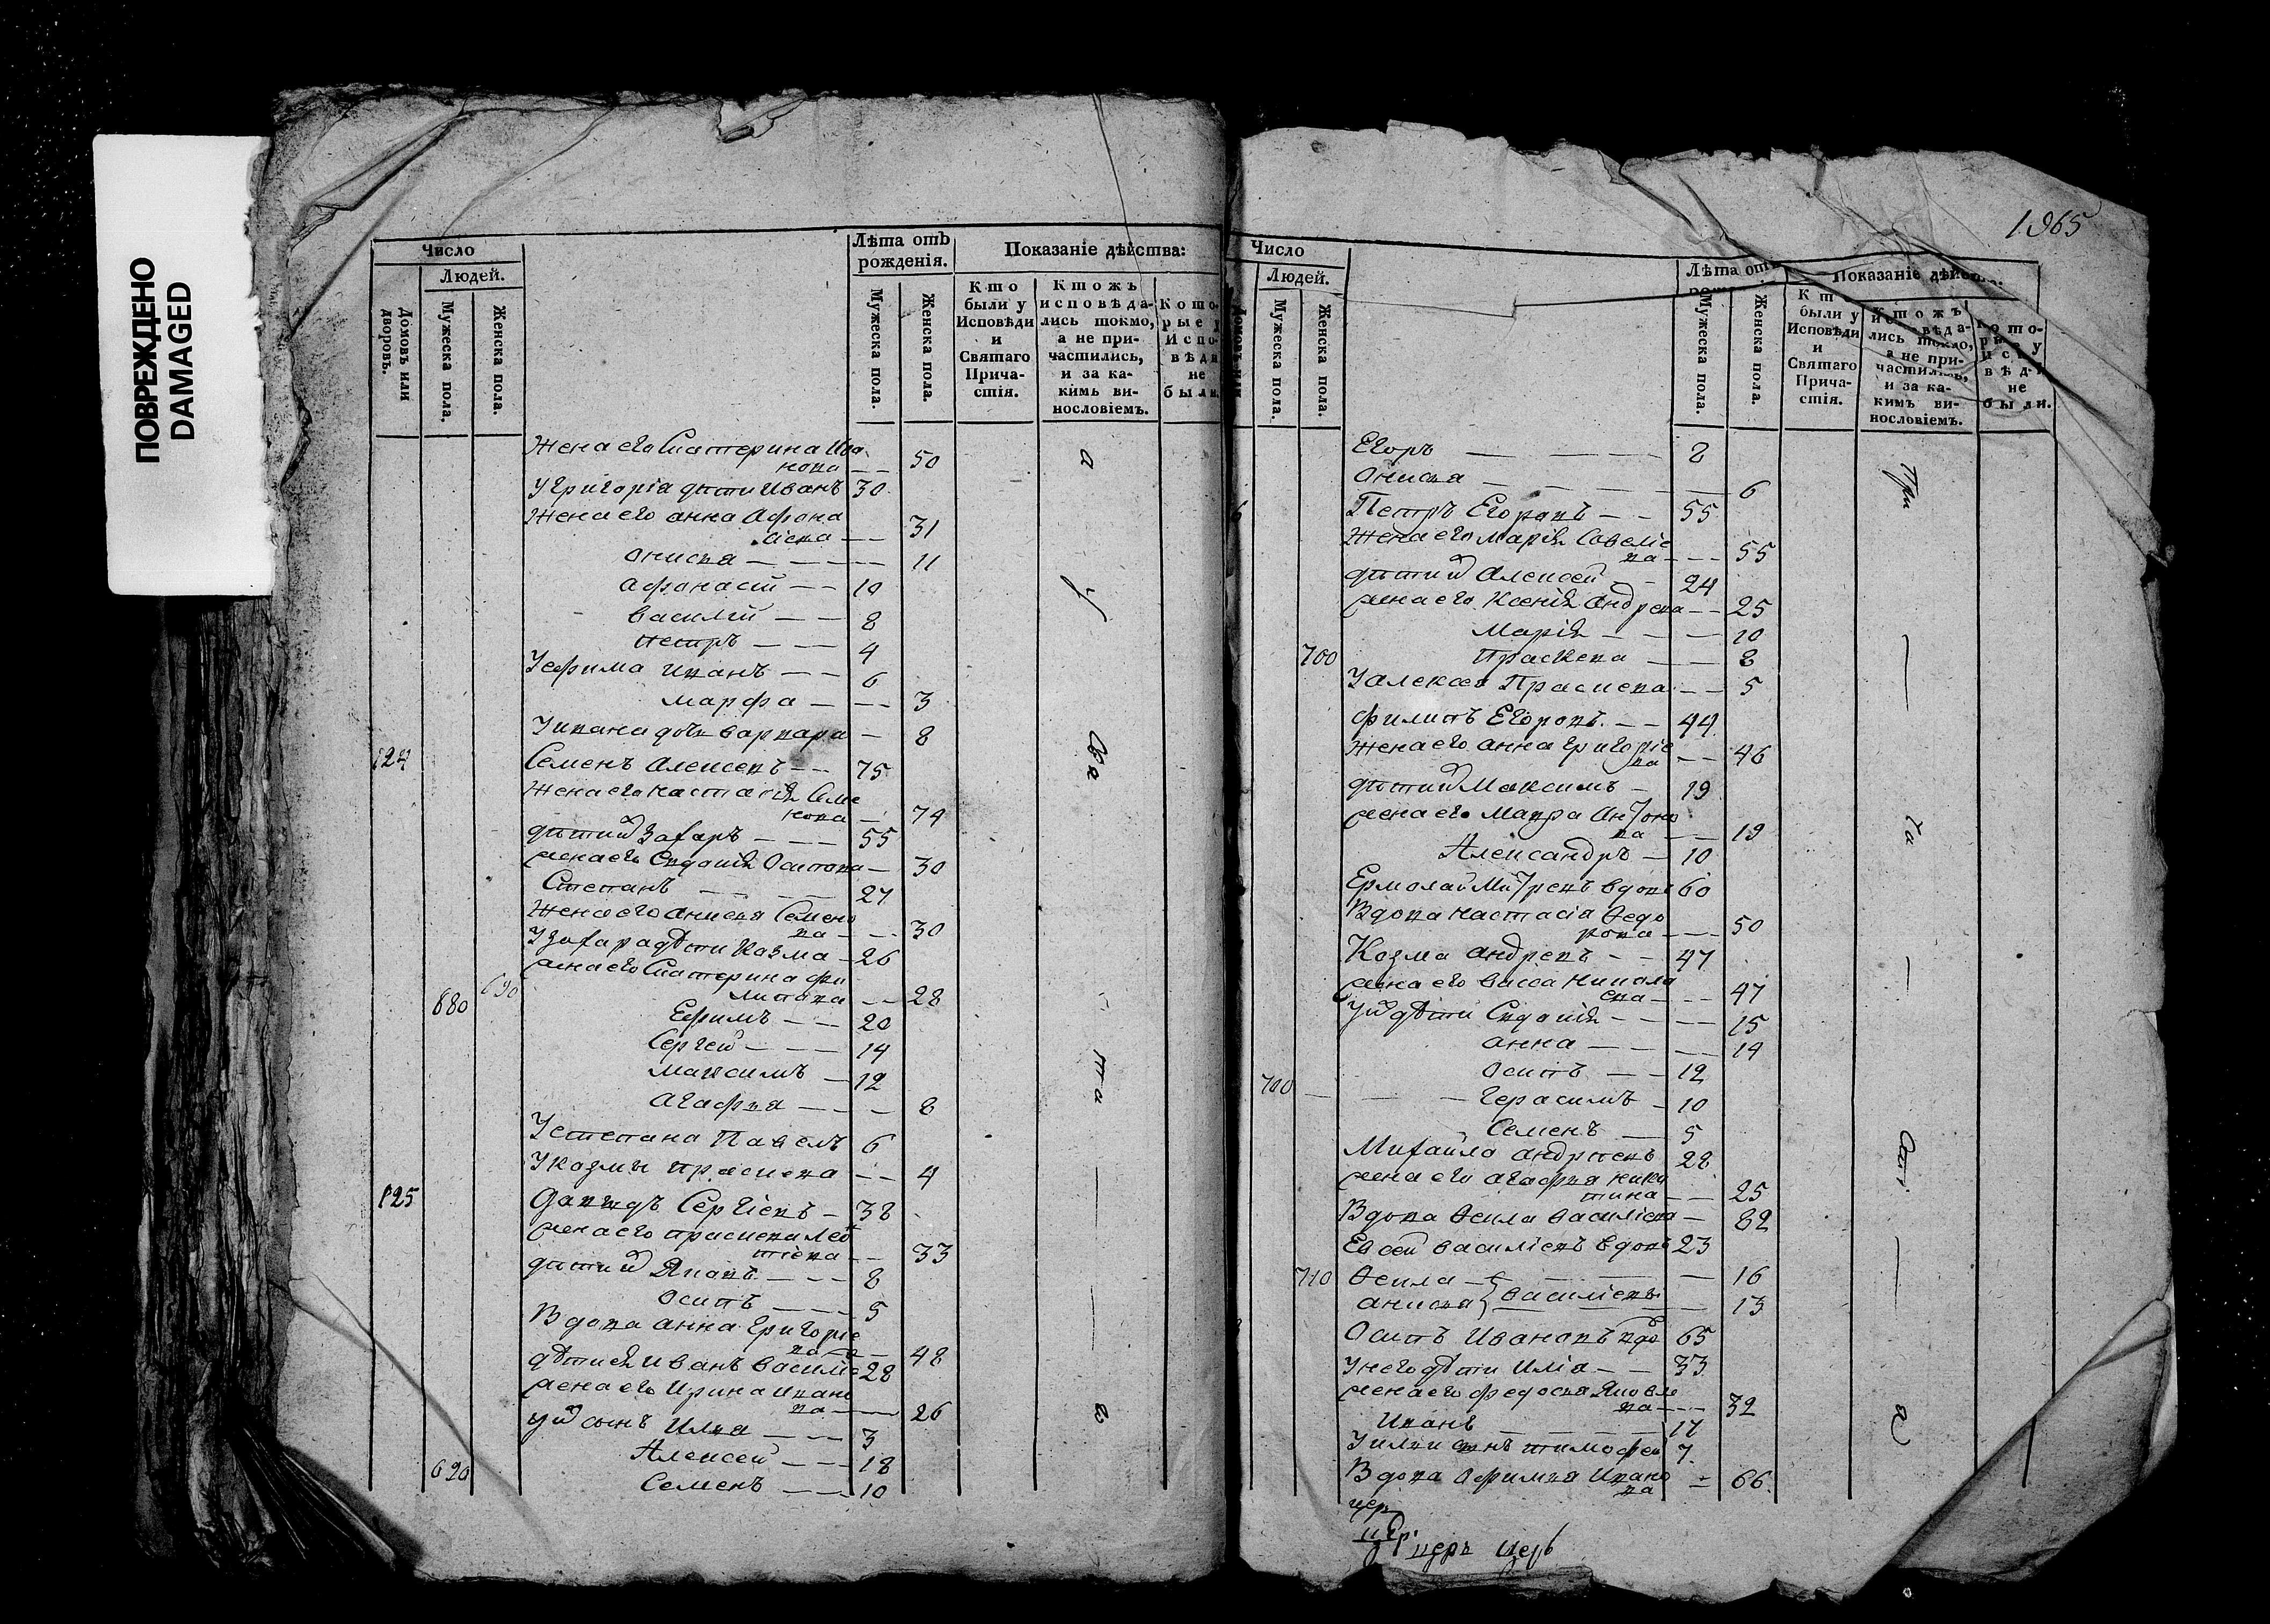 ПОВРЕЖДЕНО
DAMAGED
Число
Людей.
Домовъ или дворовъ.
Мужеска пола.
Женска пола.
Лѣта отъ рожденія.
Мужеска пола.
Женска пола.
Показаніе дѣйства:
Кто были у Исповѣди и Святаго Прича-стія.
Ктожъ исповѣда-лись токмо, а не при-частились, и за ка-кимъ ви-нословіемъ.
Кото-рые у Испо-вѣди не были.
Жена его Екатерина Ива
нова — — 50
У Григорія дѣти Иванъ 30
Жена его анна Афона
сіева — — 31
Онисья — — — 11
афонасій — — 10
василій — — 8
петръ — — 4
У ефима иванъ — — 6
марфа — — — 3
У ивана дочь варвара — 8
124 Семенъ алексеевъ — — 75
Жена его настасія Семе
нова — 74
дѣти ихъ Захаръ — — — 55
жена его Евдокія Осипова — 30
Степанъ — — — 27
Жена его анисья Семено
ва — — 30
У захара дѣти Козма — 26
690
жена его Екатерина фи
липова — — 28
680 Ефимъ — — 20
Сергей — — — 14
максимъ — 12
агафья — — — 8
У степана Павелъ 6
У козмы прасковья — — 4
125 Давидъ Сергіевъ — 38
жена его прасковья Лео
тіева — 33
дѣти ихъ Яковъ — — — 8
осипъ — — — 5
Вдова анна Григоріе
ва — 48
дѣти ея иванъ васильев 28
жена его Ирина ивано
ва — — 26
у ихъ сынъ Илья — — — 3
Алексей — — — 18
690 Семенъ — — — 10
1965
Число
Людей.
Домовъ или
Мужеска пола.
Женска пола.
Лѣта отъ
Мужеска пола.
Женска пола.
Показаніе дѣйст
Кто были у Исповѣди и Святаго Прича-стія.
Ктожъ исповѣда-лись токмо, а не при-частились, и за ка-кимъ ви-нословіемъ.
Кото-рые у Испо-вѣди не были.
Егоръ — — — — 8
Онисья — — — — — 6
Петръ Егоровъ — — 55
Жена его марія Савеліе
ва — — — 55
дѣти ихъ алексей — — 24
жена его Ксенія андреева — — 25
Марія — — — 10
700 Прасковья — — 8
У алексея Прасковья — — 5
филипъ Егоровъ — — 44
жена его анна григоріе
ва — — 46
дѣти ихъ Максимъ — 19
жена его Мавра Антоно
ва — — 19
Александръ — 10
Ермолай Митревъ вдовъ 60
Вдова настасіа Ѳедо
рова — — 50
Козма андреевъ — — 47
жена его васса никола
ева — — — 47
У ихъ дѣти Евдокія — — — — 15
анна — — — — 14
осипъ — — 12
700 — — — Герасимъ — 10
Семенъ — 5
Михайло андреевъ 28
жена его агафья ники
тина — — 25
Вдова Ѳекла василіева — 82
Евсей василіевъ вдовъ 23
710 Ѳекла — — — 16
анисья василіевы — — 13
Осипъ Ивановъ вдо 65
У него дѣти Илія — — 33
жена его федосья Яковле
ва — — 32
Иванъ — — — — 17
У ильи сынъ тимофей 7
Вдова Ефимья Ивано
ва — 66
цер
цер церъ церь